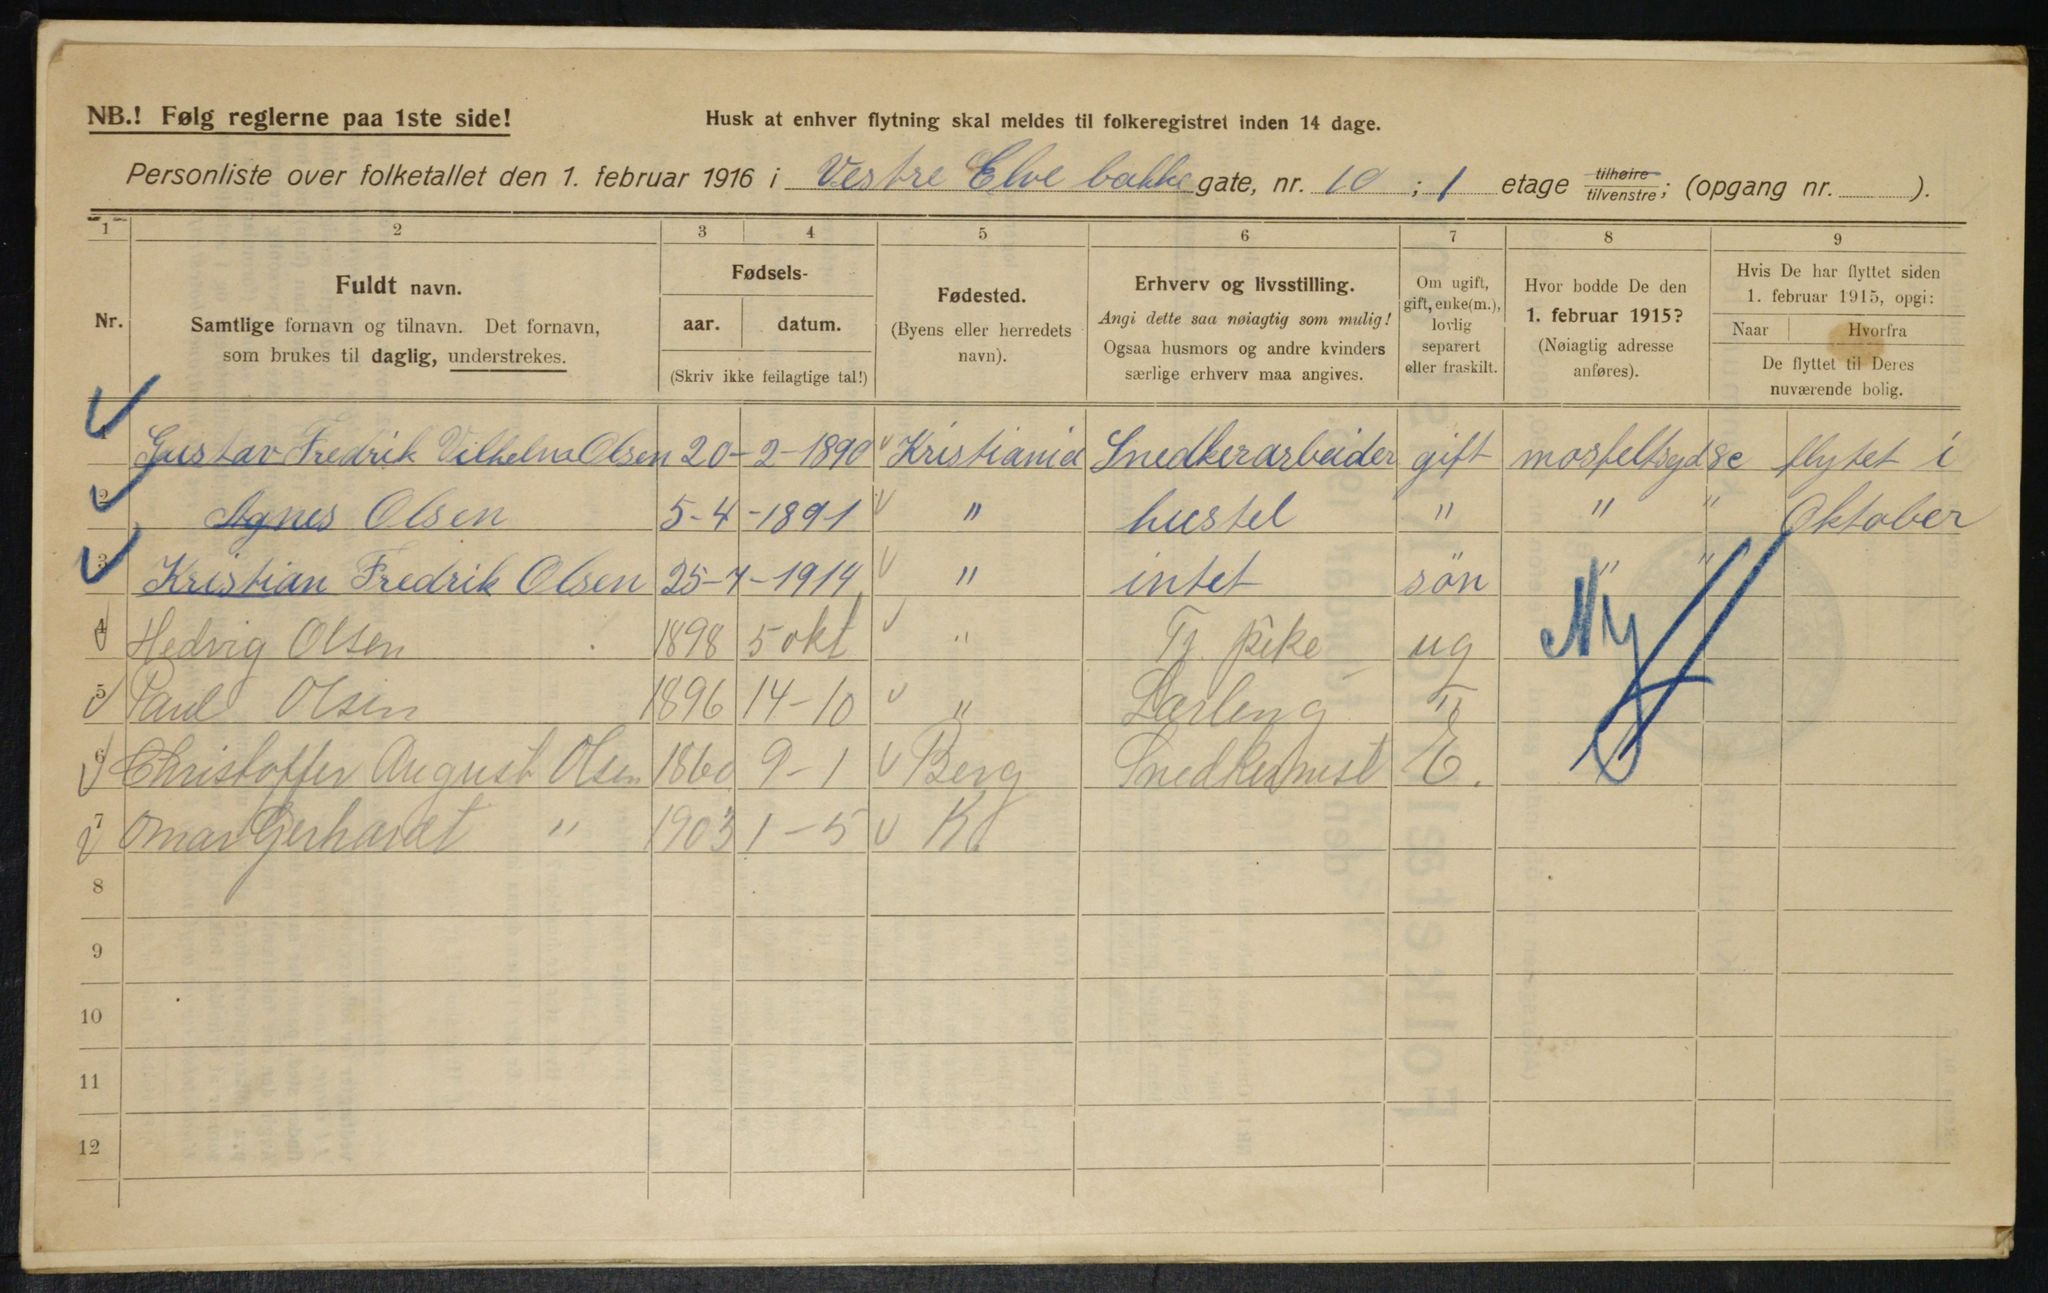 NB.! Følg reglerne paa 1ste side!
Husk at enhver flytning skal meldes til folkeregistret inden 14 dage.
Personliste over folketallet den 1. februar 1916 i Vestre Elve bakke gate, nr. 10 ; 1 etage tilhøire/tilvenstre; (opgang nr. ).
1 2 3 4 5 6 7 8 9
Nr.
Fuldt navn.
Samtlige fornavn og tilnavn. Det fornavn,
som brukes til daglig, understrekes.
Fødsels-
aar. datum.
(Skriv ikke feilagtige tal!)
Fødested.
(Byens eller herredets
navn).
Erhverv og livsstilling.
Angi dette saa nøiagtig som mulig!
Ogsaa husmors og andre kvinders
særlige erhverv maa angives.
Om ugift,
gift, enke(m.),
lovlig
separert
eller fraskilt.
Hvor bodde De den
1. februar 1915?
(Nøiagtig adresse
anføres).
Hvis De har flyttet siden
1. februar 1915, opgi:
Naar Hvorfra
De flyttet til Deres
nuværende bolig.
1 Gustav Fredrik Vilhelm Olsen 20-2-1890 Kristiania Snedkerarbeider gift flytet i
2 Agnes Olsen 5-4-1891 " hustel " " " Oktober
3 Kristian Fredrik Olsen 25-7-1914 " intet søn " "
Ny
4 Hedvig Olsen 1898 5 okt " Tj. pike ug
5 Paul Olsen 1896 14-10 " Lærling "
6 Christoffer August Olsen 1860 9-1 Berg Snedkermest E.
7 Omar Gerhardt " 1903 1-5 K.
8
9
10
11
12